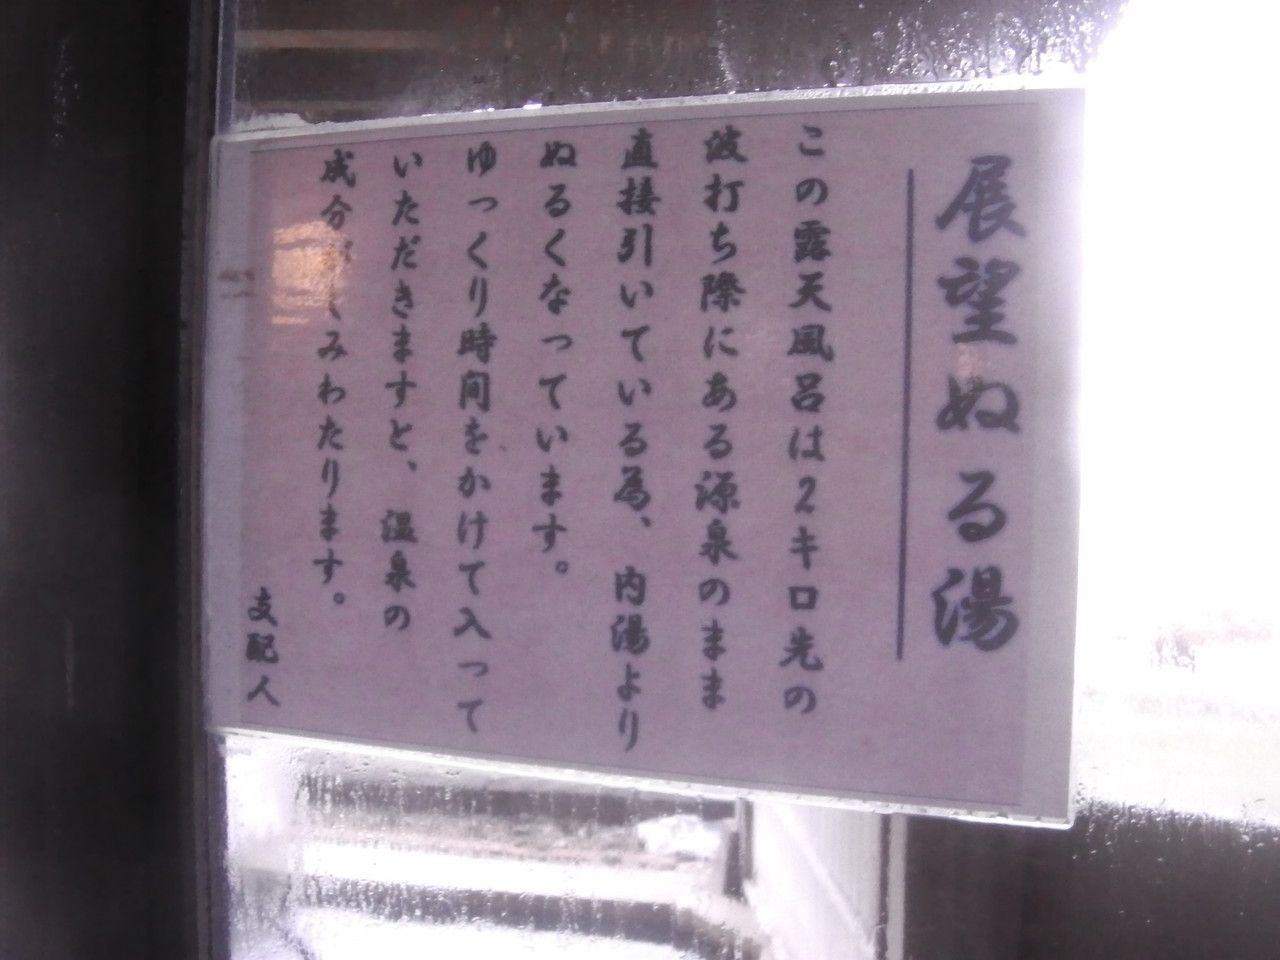 展望ぬる湯
この露天風呂は2キロ先の
波打ち際にある源泉のまま
直接引いている為、内湯より
ぬるくなっています。
ゆっくり時間をかけて入って
いただきますと、温泉の
成分がしみわたります。
支配人